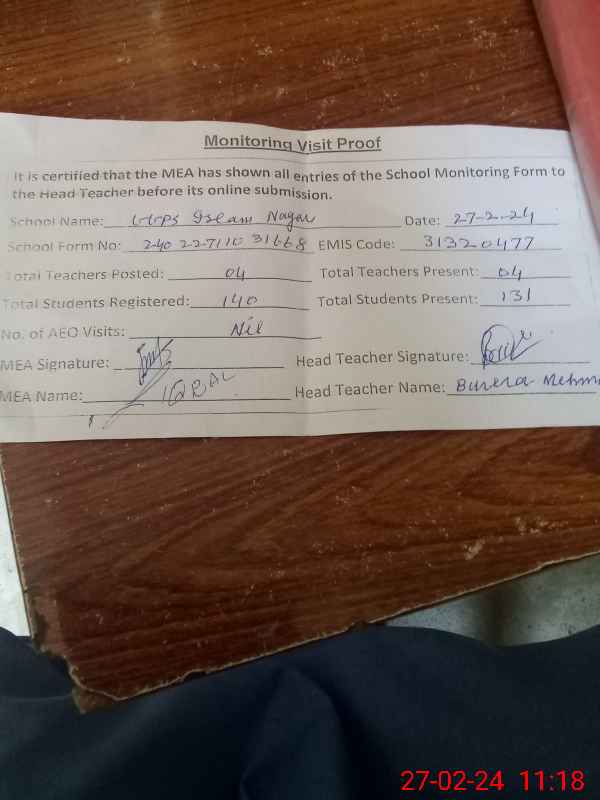 Monitoring Visit Proof
It is certified that the MEA has shown all entries of the School Monitoring Form to
the Head Teacher before its online submission.
School Name: GGPS Islam Nagar Date: 27-2-24
School Form No: 240 227110 31668 EMIS Code: 31320477
Total Teachers Posted: 04 Total Teachers Present: 04
Total Students Registered: 140 Total Students Present: 131
No. of AEO Visits: Nil
MEA Signature: Head Teacher Signature:
MEA Name: IQBAL Head Teacher Name: Burera Mehm
27-02-24 11:18